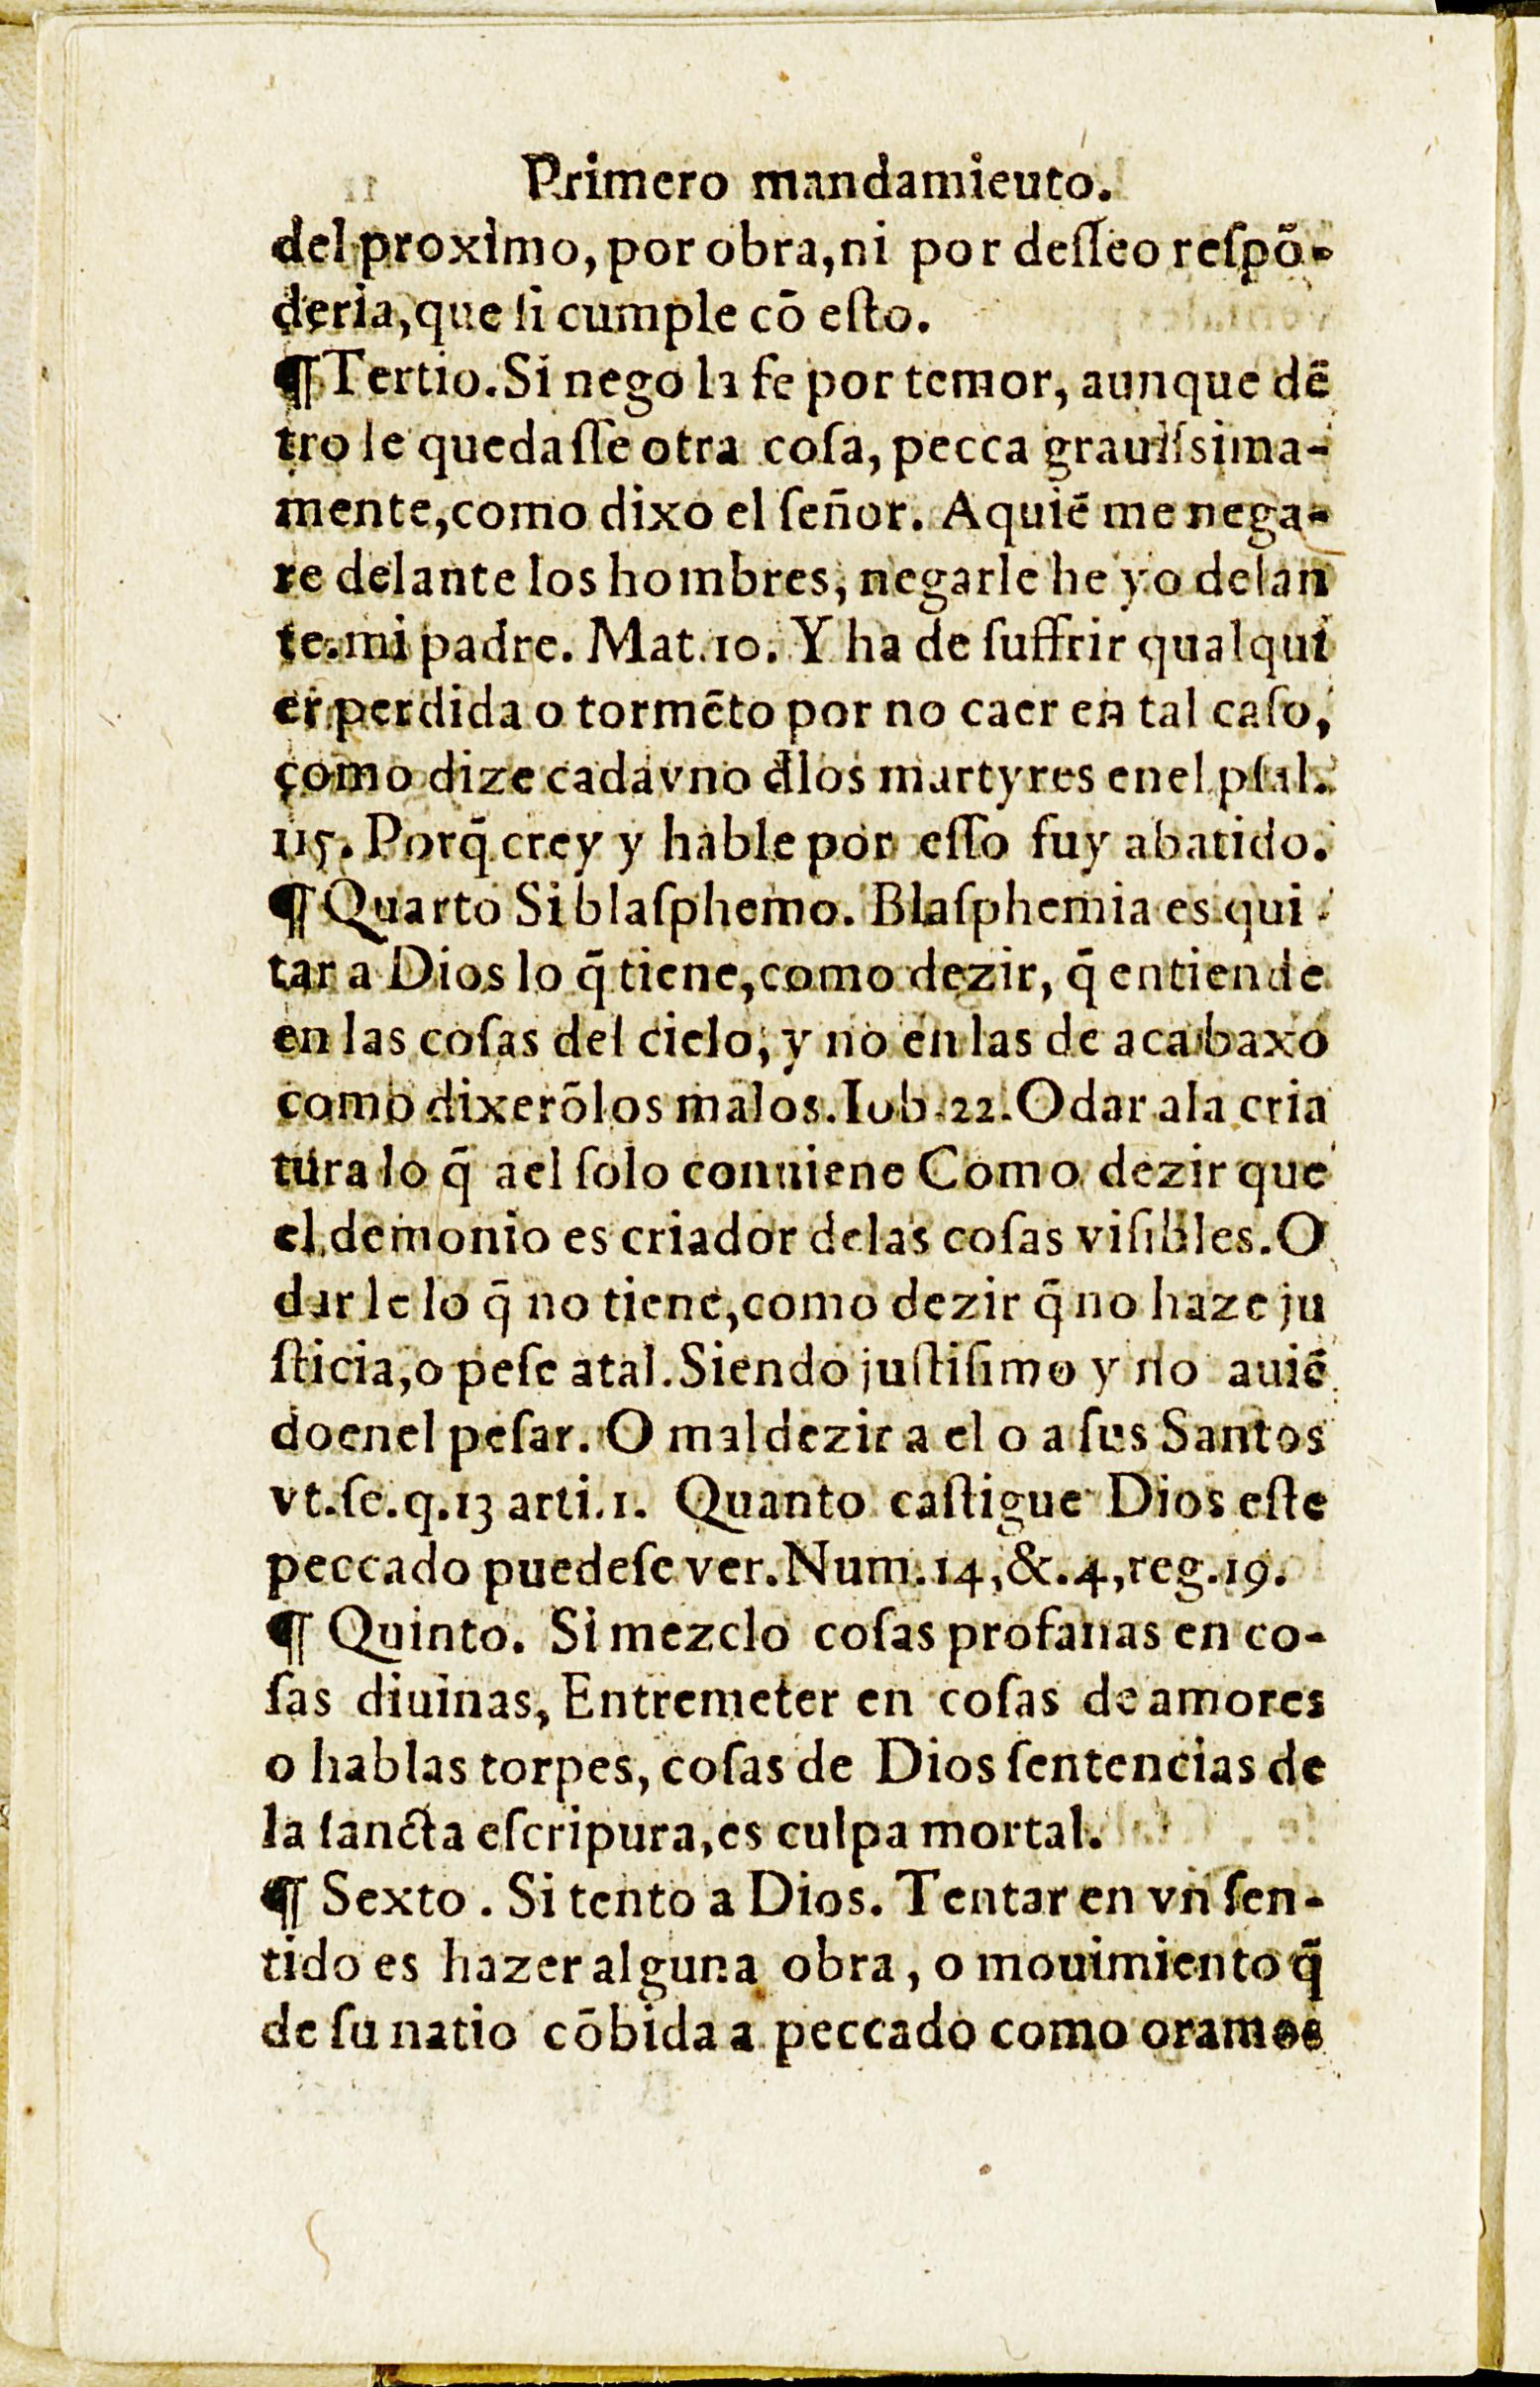 Primero mandamieuto.
del proximo, por obra, ni por deſſeo reſpõ-
deria, que ſi cumple cõ eſto.
¶ Tertio. Si nego la fe por temor, aunque dẽ
tro le quedaſſe otra coſa, pecca grauiſsima-
mente, como dixo el ſeñor. Aquiẽ me nega-
re delante los hombres, negarle he yo delan
te mi padre. Mat. 10. Y ha de ſuffrir qualqui
er perdida o tormẽto por no caer en tal caſo,
como dize cadavno đlos martyres enel pſal.
115. Porq̃ crey y hable por eſſo fuy abatido.
¶ Quarto Si blaſphemo. Blaſphemia es qui-
tar a Dios lo q̃ tiene, como dezir, q̃ entiende
en las coſas del cielo, y no en las de aca baxo
como dixerõ los malos. Iob. 22. O dar ala cria
tura lo q̃ a el ſolo conuiene Como dezir que
el demonio es criador delas coſas viſibles. O
dar le lo q̃ no tiene, como dezir q̃ no haze ju
ſticia, o peſe atal. Siendo juſtiſimo y no auiẽ
do enel peſar. O maldezir a el o a ſus Santos
vt. ſe. q. 13 arti. 1. Quanto caſtigue Dios eſte
peccado puedeſe ver. Num. 14, &. 4, reg. 19.
¶ Quinto. Si mezclo coſas profanas en co-
ſas diuinas, Entremeter en coſas de amores
o hablas torpes, coſas de Dios ſentencias de
la ſancta eſcripura, es culpa mortal.
¶ Sexto. Si tento a Dios. Tentar en vn ſen-
tido es hazer alguna obra, o mouimiento q̃
de ſu natio cõbida a peccado como oramos